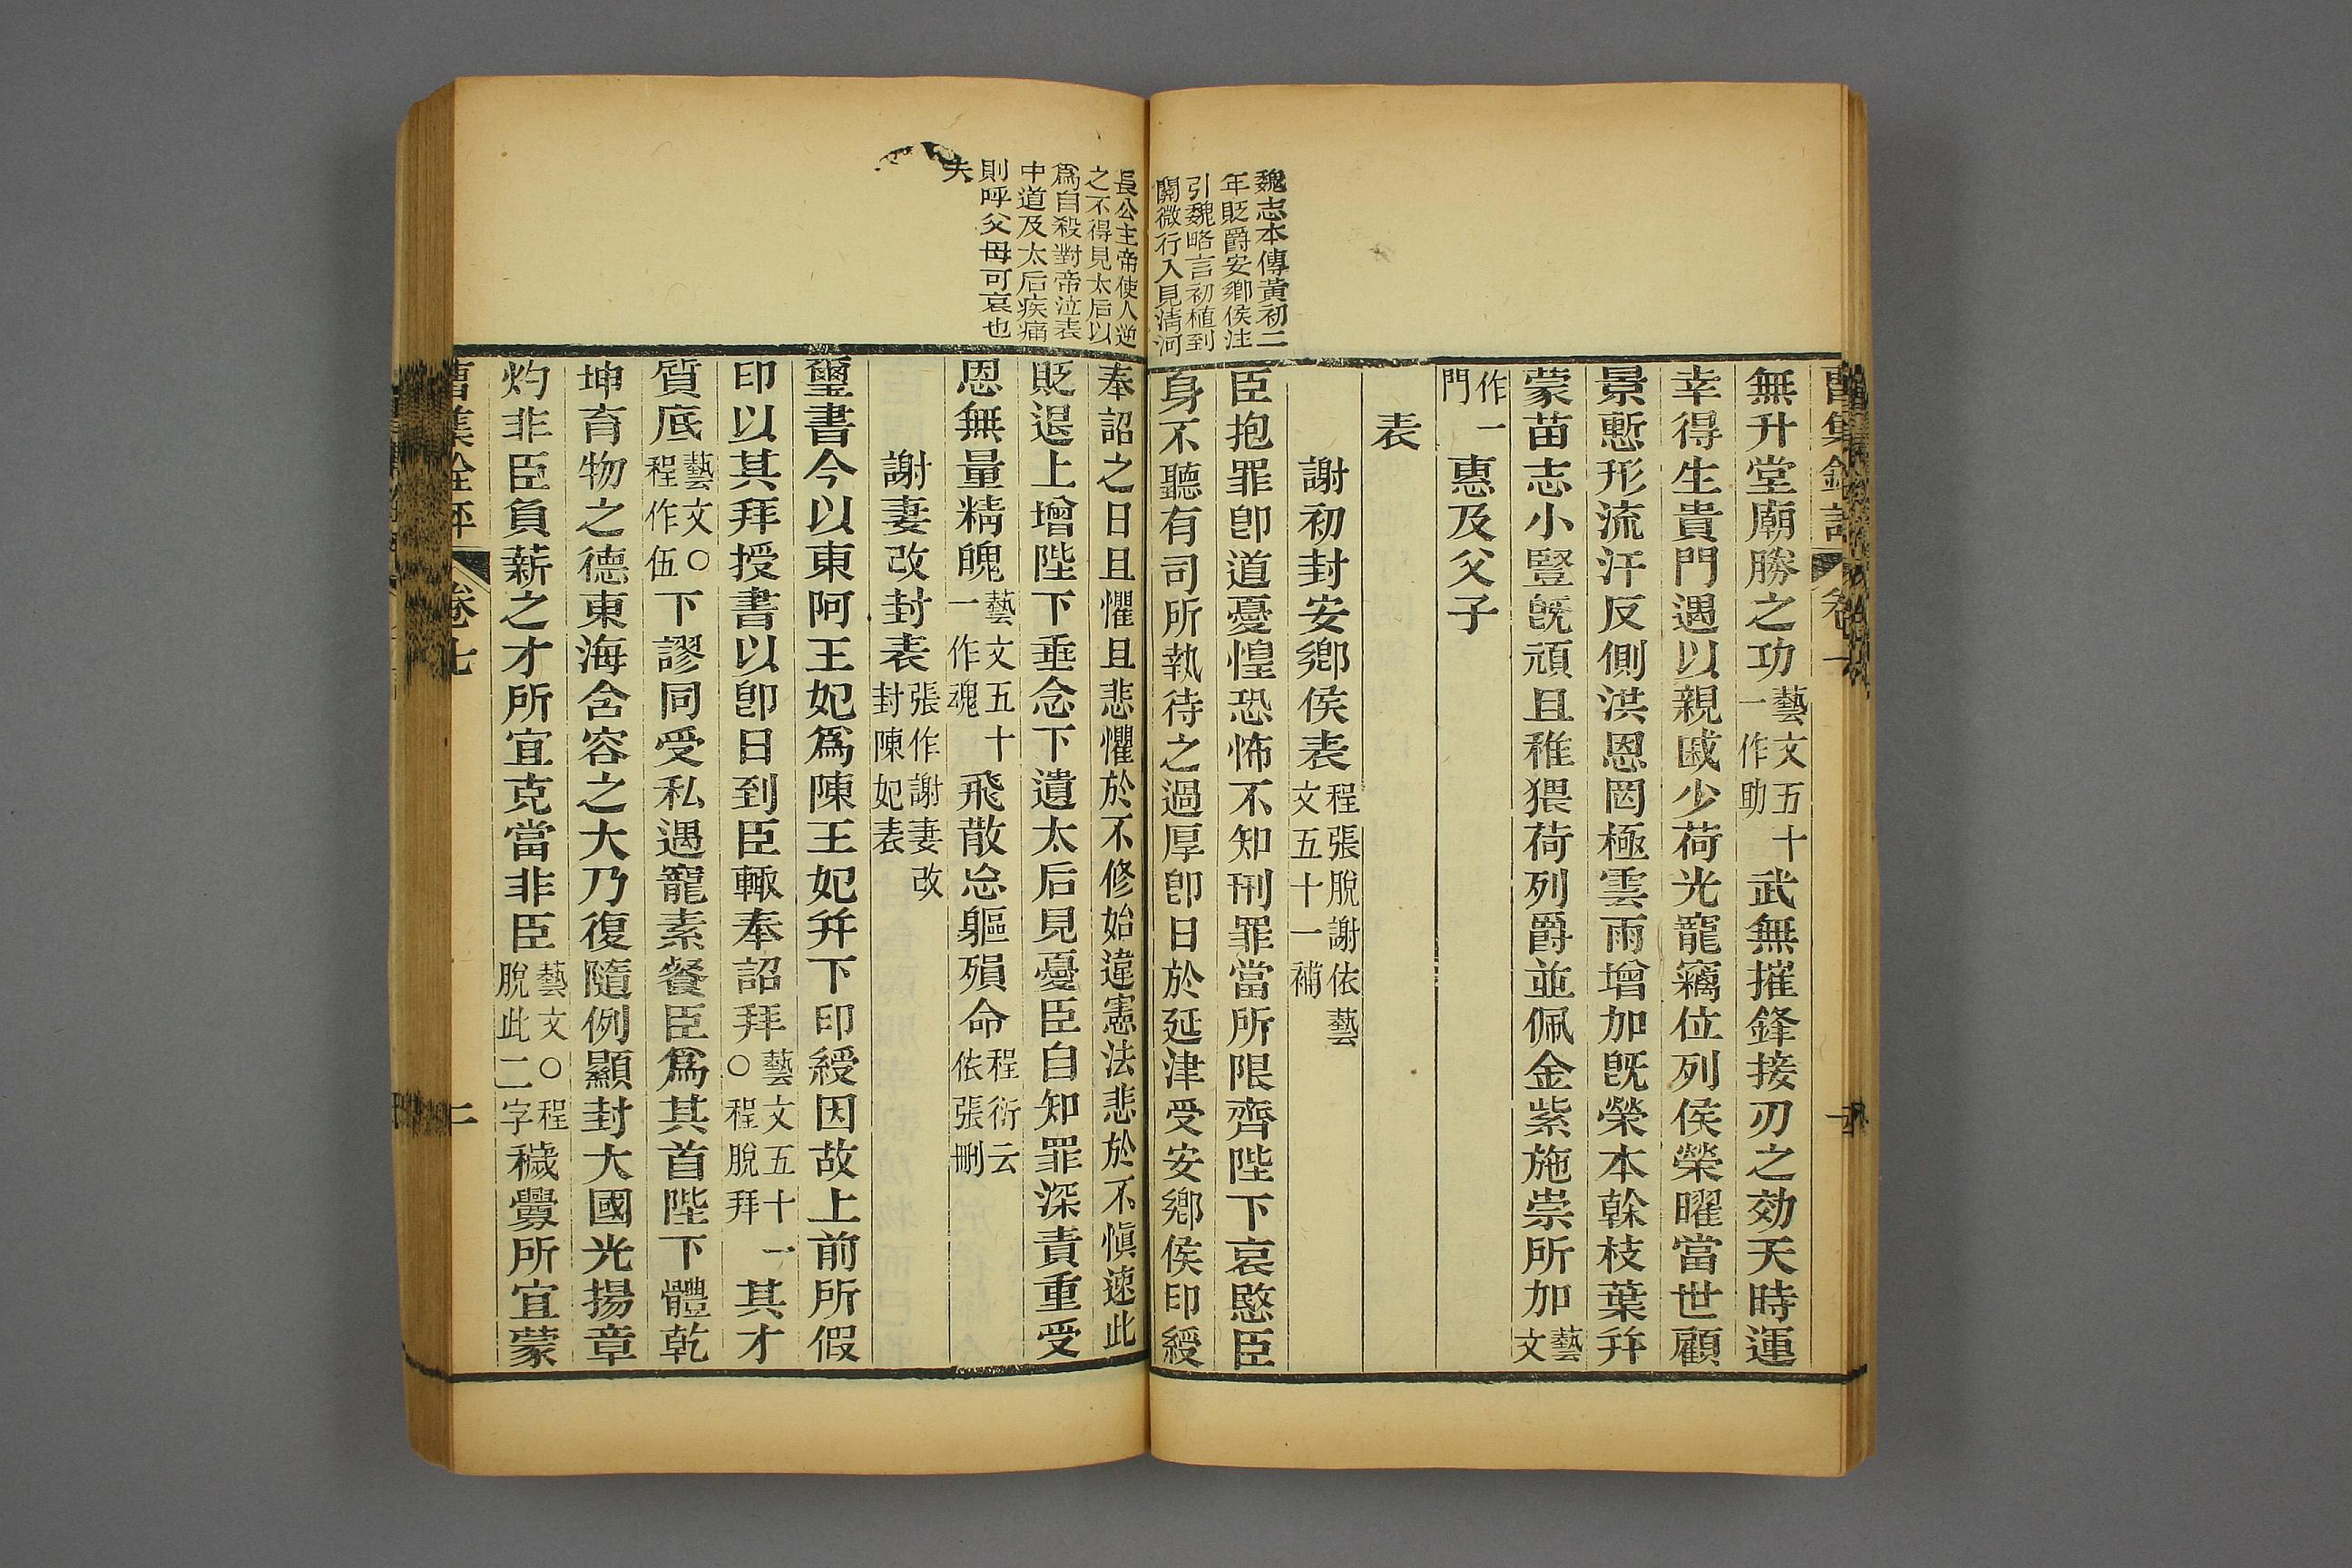 魏志本傳黃初二
年貶爵安鄉侯注
引魏略言初植到
關微行入見清河
無升堂廟勝之功藝文五十一作助武無摧鋒接刃之効天時運
幸得生貴門遇以親戚少荷光寵竊位列侯榮曜當世顧
景慙形流汗反側洪恩罔極雲雨增加旣榮本榦枝葉幷
蒙苗志小豎旣頑且稚猥荷列爵並佩金紫施崇所加藝文
作門一惠及父子
表
謝初封安鄉侯表程張脫謝依藝文五十一補
臣抱罪卽道憂惶恐怖不知刑罪當所限齊陛下哀愍臣
身不聽有司所執待之過厚卽日於延津受安鄉侯印綬
長公主帝使人逆
之不得見太后以
爲自殺對帝泣表
中道及太后疾痛
則呼父母可哀也
夫
奉詔之日且懼且悲懼於不修始違憲法悲於不愼速此
貶退上增陛下垂念下遺太后見憂臣自知罪深責重受
恩無量精魄藝文五十一作魂飛散忘軀殞命程衍云依張刪
謝妻改封表張作謝妻改封陳妃表
璽書今以東阿王妃爲陳王妃幷下印綬因故上前所假
印以其拜授書以卽日到臣輙奉詔拜藝文五十一○程脫拜其才
質底藝文○程作伍下謬同受私遇寵素餐臣爲其首陛下體乾
坤育物之德東海含容之大乃復隨例顯封大國光揚章
灼非臣負薪之才所宜克當非臣藝文○程脫此二字穢釁所宜蒙
曹集銓評 卷七 二